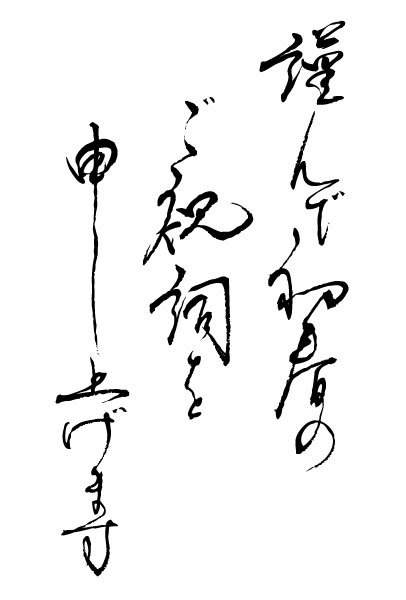 謹んで初春の
ご祝詞を
申し上げます